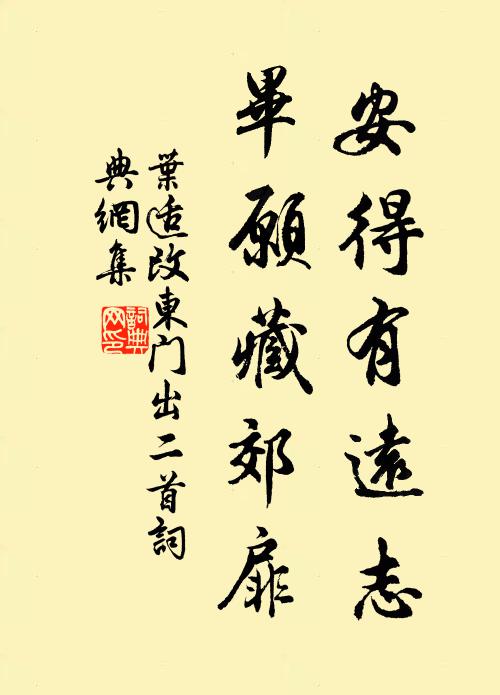 安得有遠志
畢願藏郊扉
葉适改東門出二首詞
典網集
詞典
网印